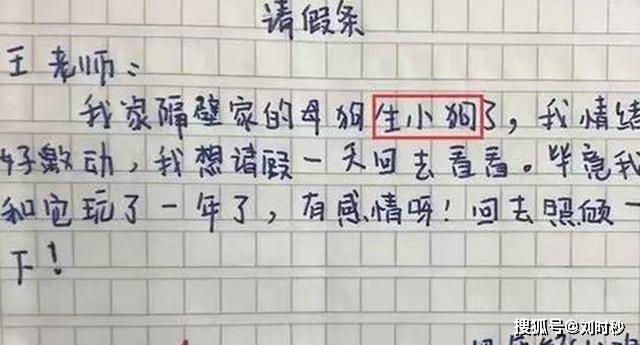 请假条
王老师：
我家隔壁家的母狗生小狗了，我情绪
好激动，我想请假一天回去看看。毕竟我
和它玩了一年了，有感情呀！回去照顾一
下！
搜狐号@刘时秒